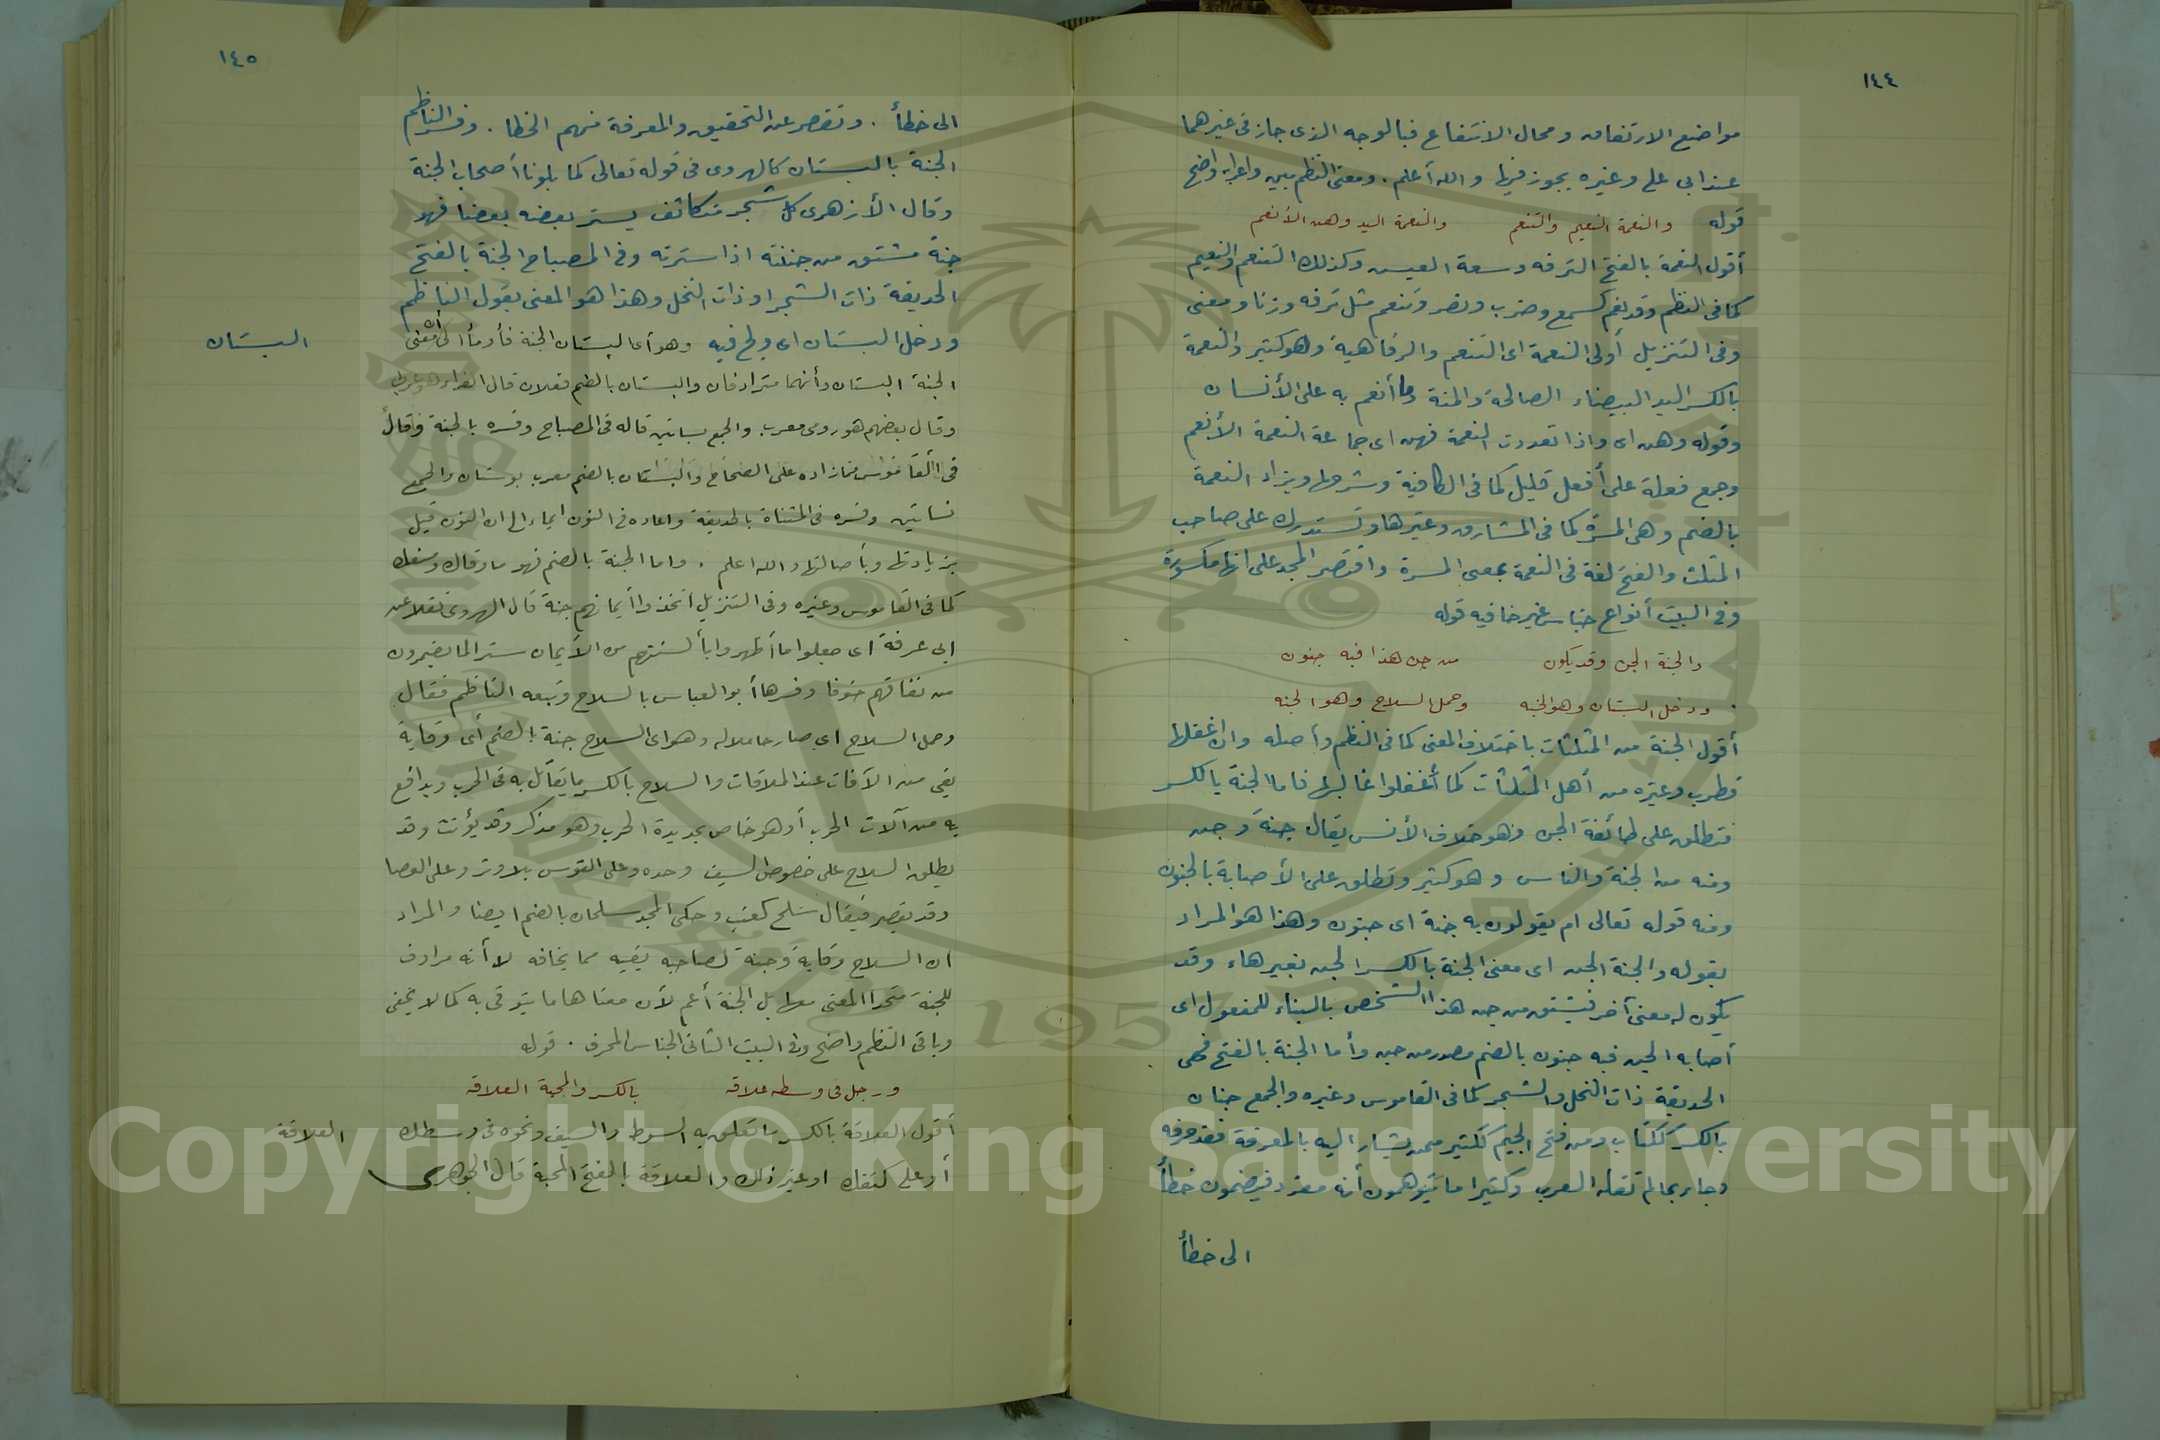 ١٤٤
مواضع الارتفاق ومحال الانتفاع فبالوجه الذى جاز فى غيرهما
عند ابى على وغيره يجوز فيها والله أعلم . ومعنى النظم بين واعرابه واضح
قوله والنعمة النعيم والتنعم والنعمة اليد وهن الأنعم
أقول النعمة بالفتح الترفه وسعة العيش وكذلك التنعم والنعيم
كما فى النظم وقد نعم كسمع وضرب ونصر وتنعم مثل ترفه وزنا ومعنى
وفى التنزيل أولى النعمة اى التنعم والرفاهية وهو كثير والنعمة
بالكسر اليد البيضاء الصالحة والمنة وما أنعم به على الأنسان
وقوله وهن اى واذا تعددت النعمة فهن اى جماعة النعمة الأنعم
وجمع فعلة على أفعل قليل كما فى الكافية وشرحها ويزاد النعمة
بالضم وهى المسرة كما فى المشارق وغيرها وتستدرك على صاحب
المثلث والفتح لغة فى النعمة بمعنى المسرة واقتصر المجد على انها مكسورة
وفى البيت أنواع جناس غير خافيه قوله
والجنة الجن وقد يكون من جن هذا فبه جنون
ودخل البستان وهو الجنه وحمل السلاح وهو الجنه
أقول الجنة من المثلثات باختلاف المعنى كما فى النظم وأصله وان اغفلها
قطرب وغيره من أهل المثلثات كما أغفلوا غالبها فاما الجنة بالكسر
فتطلق على طائفة الجن وهو خلاف الأنس يقال جنة وجن
ومنه من الجنة والناس وهو كثير وتطلق على الأصابة بالجنون
ومنه قوله تعالى ام يقولون به جنة اى جنون وهذا هو المراد
بقوله والجنة الجن اى معنى الجنة بالكسر الجن بغير هاء وقد
يكون له معنى آخر فيشتق من جن هذا الشخص بالبناء للمفعول اى
أصابه الجن فبه جنون بالضم مصدر من جن وأما الجنة بالفتح فهى
الحديقة ذات النخل والشجر كما فى القاموس وغيره والجمع جنان
بالكسر ككتاب ومن فتح الجيم ككثير ممن يشار اليه بالمعرفة فقد حرفه
وجاء بما لم تقله العرب وكثيرا ما يتوهمون أنه مفرد فيضمون خطأ
الى خطأ
١٤٥
الى خطأ . وتقصر عن التحقيق والمعرفة منهم الخطا . وفسر الناظم
الجنة بالبستان كالهروى فى قوله تعالى كما بلونا أصحاب الجنة
وقال الأزهرى كل شجر متكاثف يستر بعضه بعضا فهو
جنة مشتق من جننته اذا سترته وفى المصباح الجنة بالفتح
الحديقة ذات الشجر او ذات النخل وهذا هو المعنى بقول الناظم
ودخل البستان اى ولج فيه وهو أى البستان الجنة فأومأ الى أن معنى
البستان
الجنة البستان وأنهما مترادفان والبستان بالضم فعلان قال الفراء هو عربى
وقال بعضهم هو رومى معرب والجمع بساتين قاله فى المصباح وفسره بالجنة وقال
فى القاموس مما زاده على الصحاح والبستان بالضم معرب بوستان والجمع
بساتين وفسره فى المثناة بالحديقة واعاده فى النون ايماء الى ان النون قيل
بزيادتها وبأصالتها والله اعلم . واما الجنة بالضم فهو ما وقاك
كما فى القاموس وغيره وفى التنزيل اتخذوا أيمانهم جنة قال الهروى نقلا عن
ابى عرفة اى جعلوا ما أظهروا بألسنتهم من الأيمان سترا لما يضمرون
من نفاقهم خوفا وفسرها أبو العباس بالسلاح وتبعه الناظم فقال
وحمل السلاح اى صار حاملا له وهو اى السلاح جنة بالضم أى وقاية
يقى من الآفات عند الملاقات والسلاح بالكسر ما يقاتل به فى الحرب ويدافع
به من آلات الحرب أو هو خاص بحديدة الحرب وهو مذكر وقد يؤنث وقد
يطلق السلاح على خصوص السيف وحده وعلى القوس بلا وتر وعلى العصا
وقد يقصر فيقال سلح كعنب وحكى المجد سلحان بالضم ايضا والمراد
ان السلاح وقاية وجنة لصاحبه يقيه مما يخافه لا أنه مرادف
للجنة متحد المعنى معها بل الجنة أعم لأن معناها ما يتوقى به كما لا يخفى
وباقى النظم واضح وفى البيت الثانى الجناس المحرف . قوله
ورجل فى وسطه علاقه بالكسر والمحبة العلاقه
أقول العلاقة بالكسر ما تعلق به السوط والسيف ونحوه فى وسطك
العلاقة
أو على كتفك او غير ذلك والعلاقة بالفتح المحبة قال الجوهرى
Copyright © King Saud University
1957